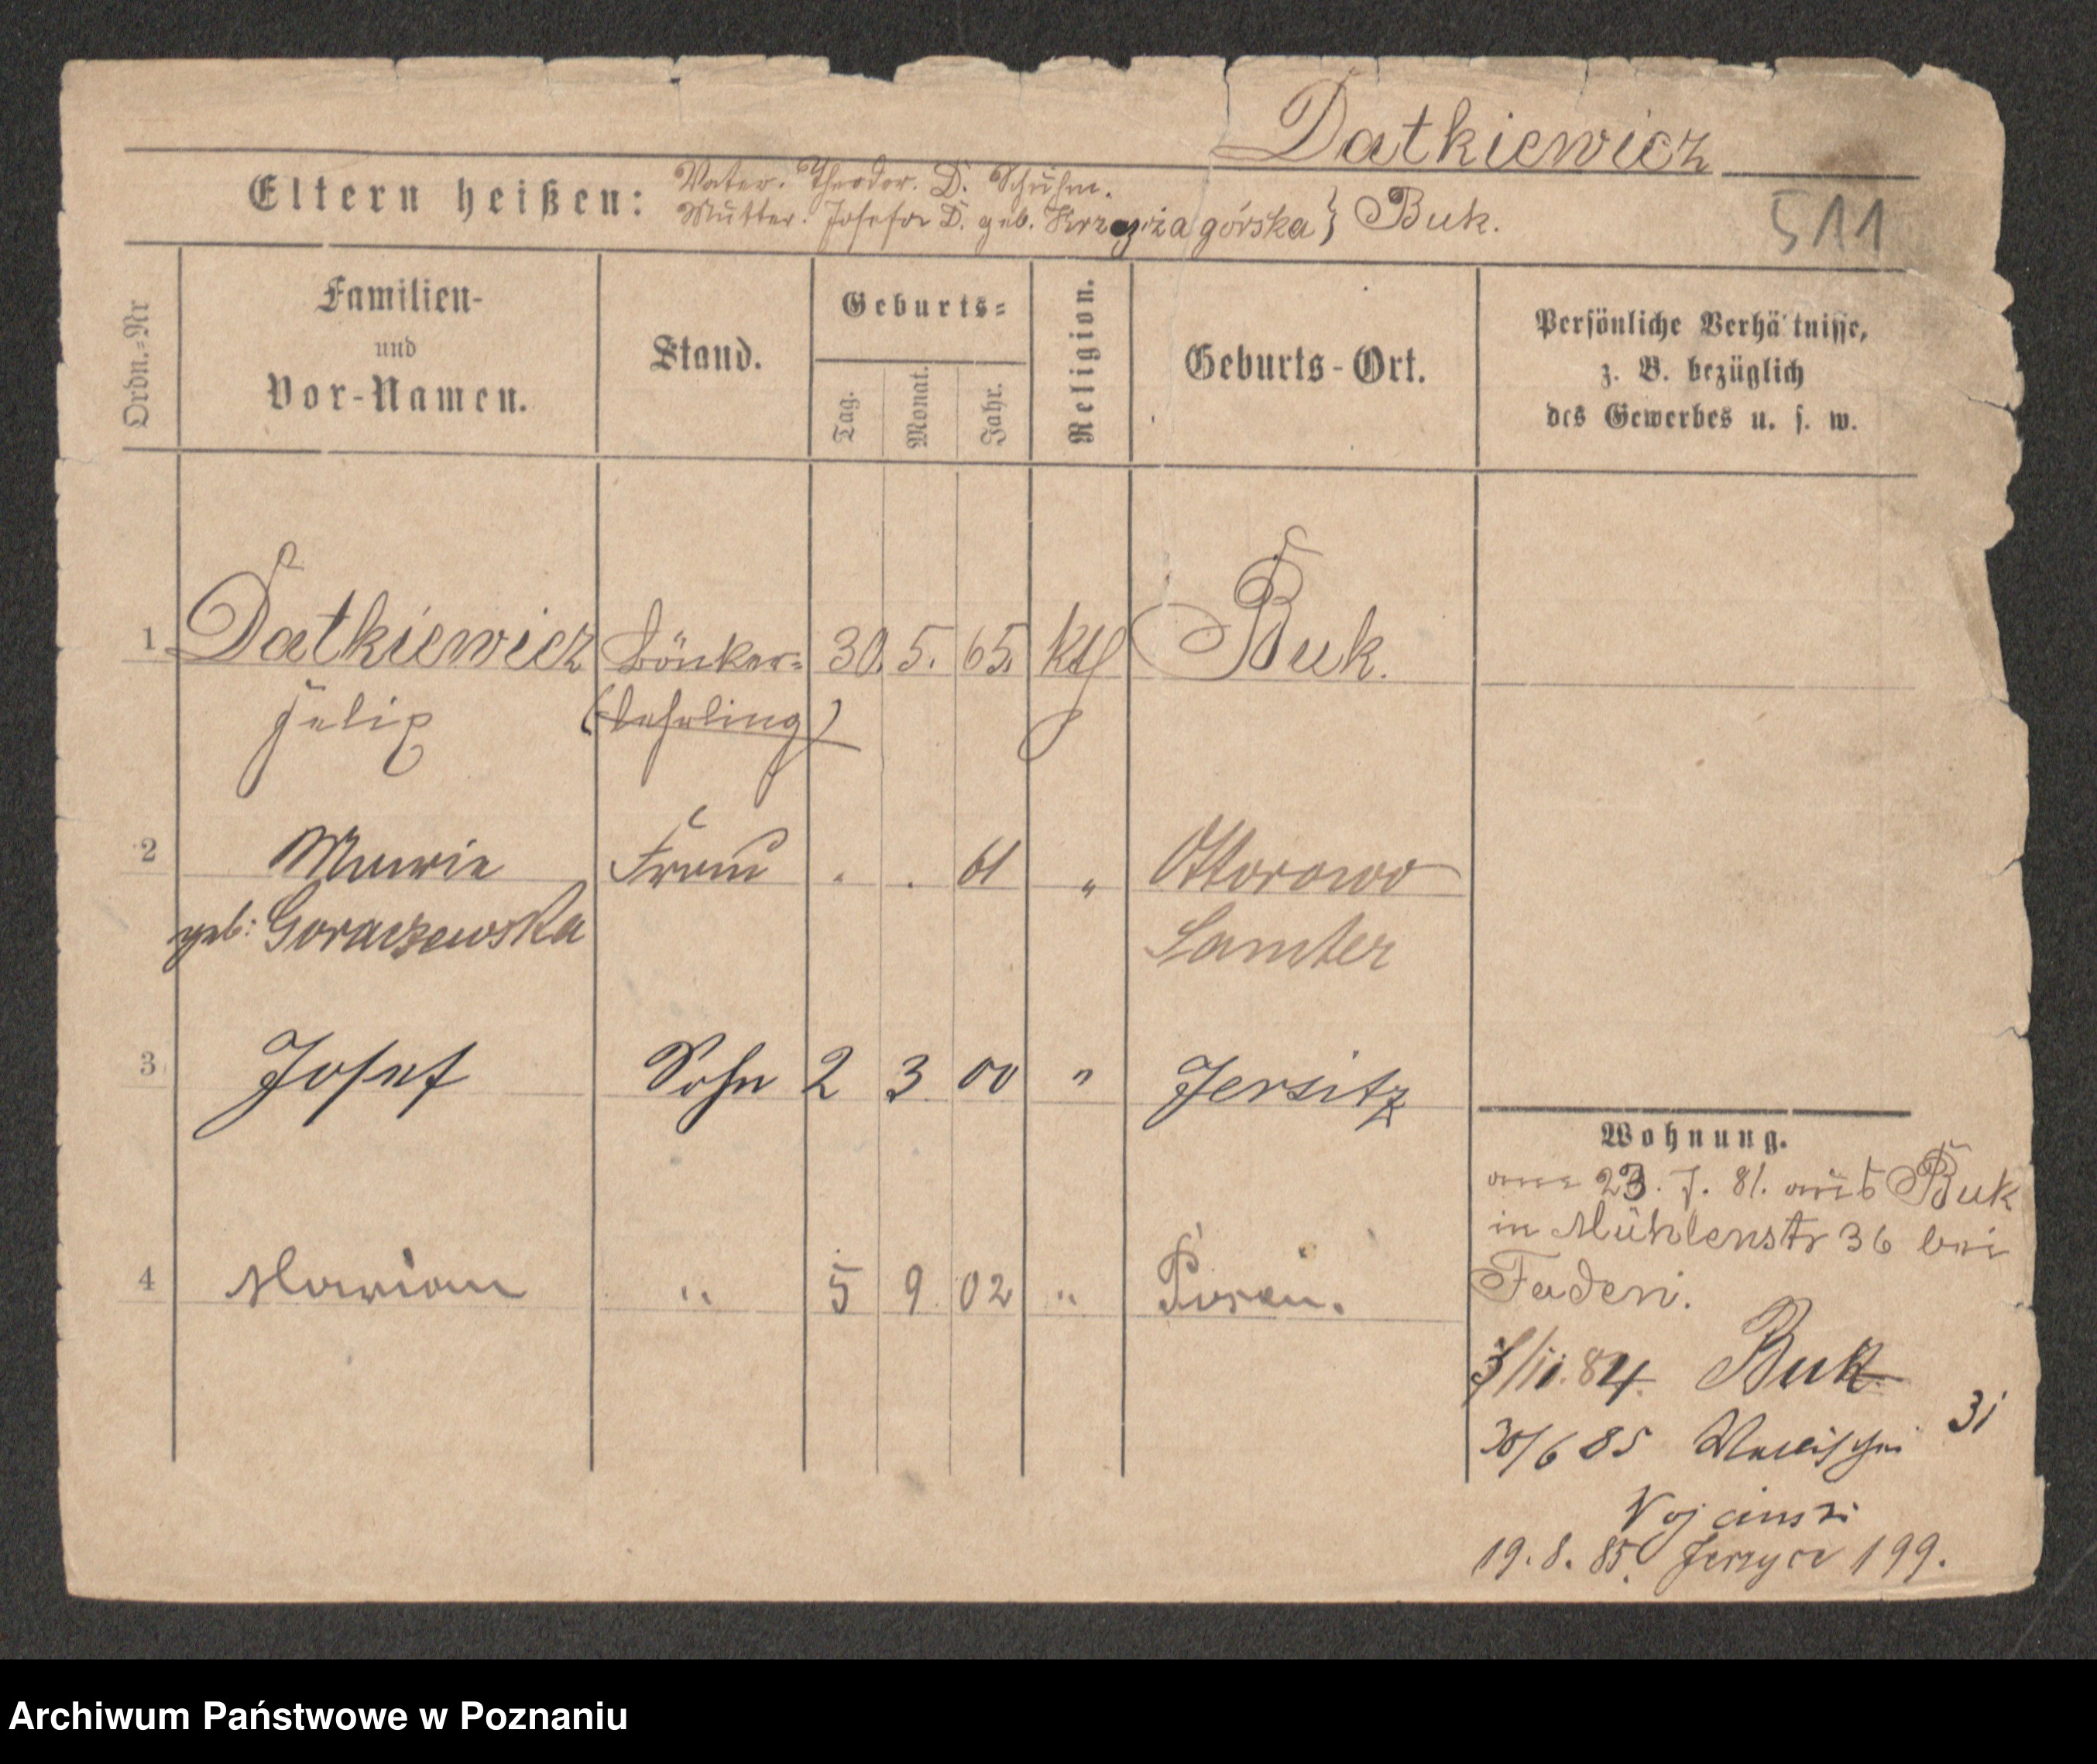 Datkiewicz
Eltern heißen: Vater. Theodor. D. Schuhm.
Mutter. Josefa D. geb. Krzyżagórska } Buk.
511
Ordn.=Nr
Familien-
und
Vor-Namen.
Stand.
Geburts=
Tag.
Monat.
Jahr.
Religion.
Geburts-Ort.
Persönliche Verhältnisse,
z. B. bezüglich
des Gewerbes u. s. w.
1 Datkiewicz 30. 5. 65. Ktl Buk.
Felix (Lehrling)
2 Marie Frau . . 61 " Ottorowo
geb: Goraczewska Samter
3 Josef Sohn 2 3 00 " Jersitz
4 Marian " 5 9 02 " Posen.
Wohnung.
am 23. 7. 81. aus Buk
in Mühlenstr 36 bei
Faden.
84. Buk
30/6 85 31
Wojcinski
19. 8. 85. Jerzyce 199.
Archiwum Państwowe w Poznaniu